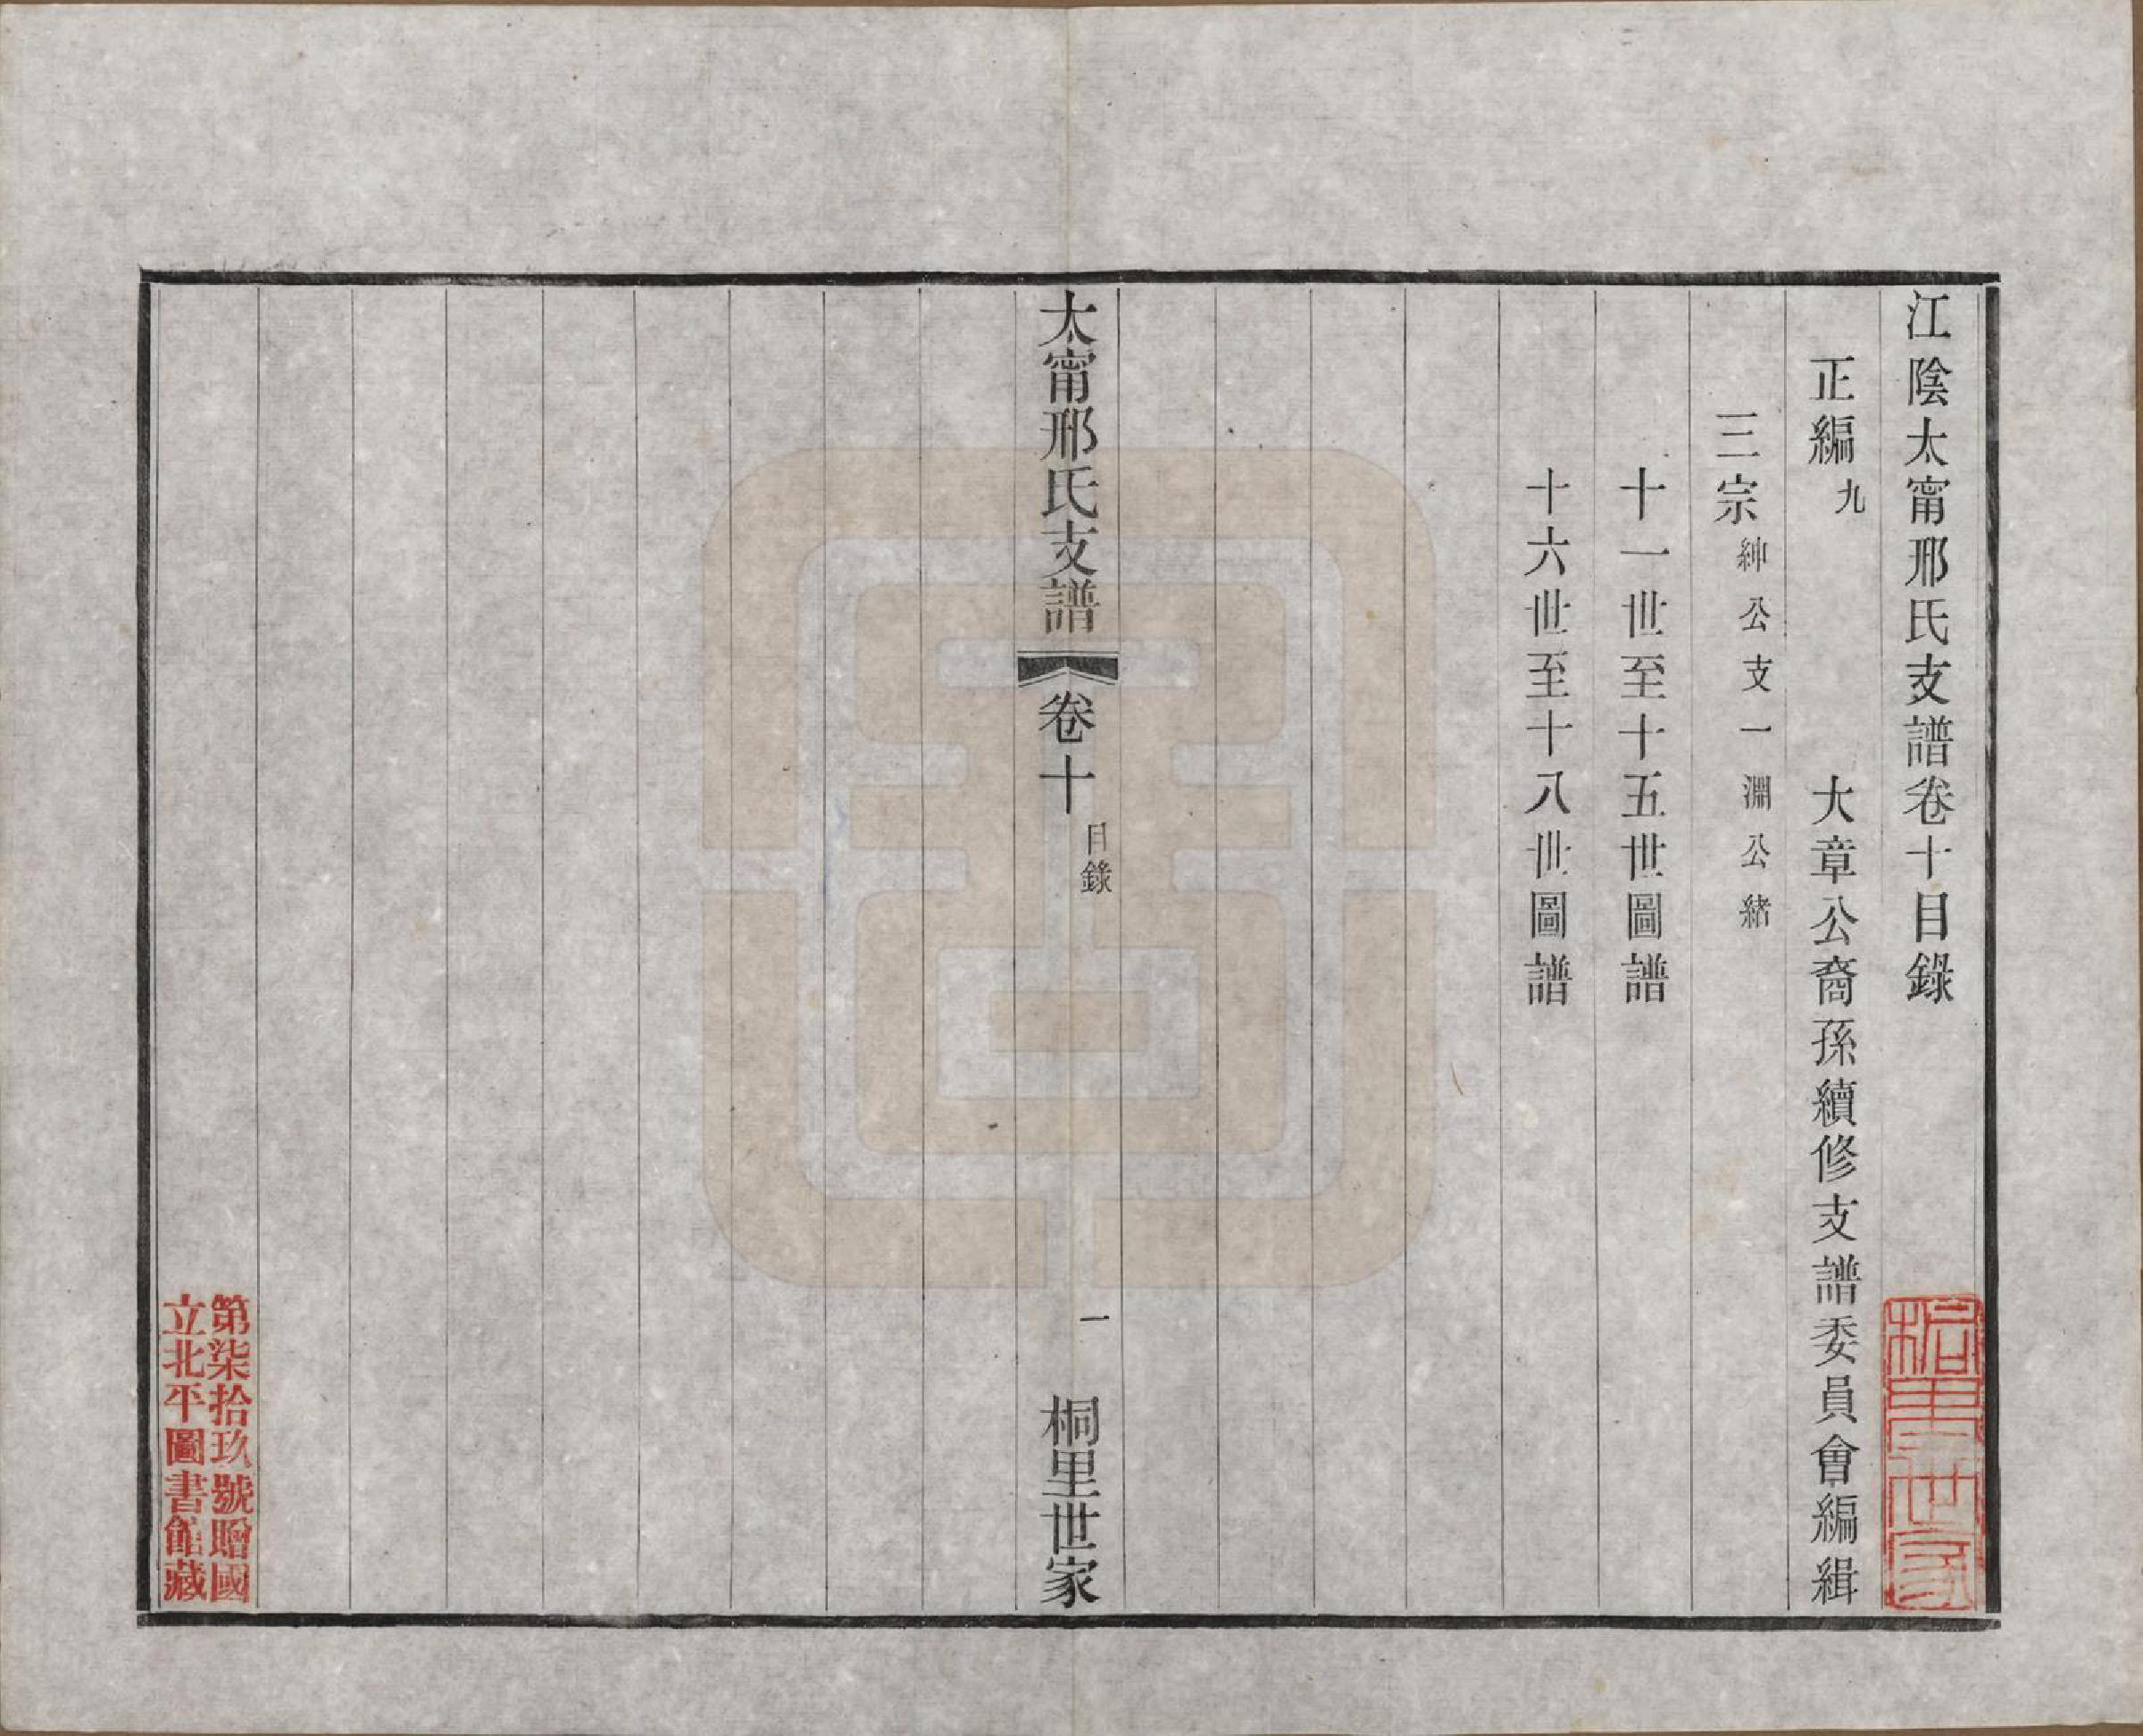 江陰太甯邢氏支譜卷十目錄
正編九 大章公裔孫續修支譜委員會編輯
三宗紳公支一淵公緒
十一世至十五世圖譜
十六世至十八世圖譜
太甯邢氏支譜 卷十 目錄 一 桐里世家
桐里世家
第柒拾玖號贈國
立北平圖書館藏